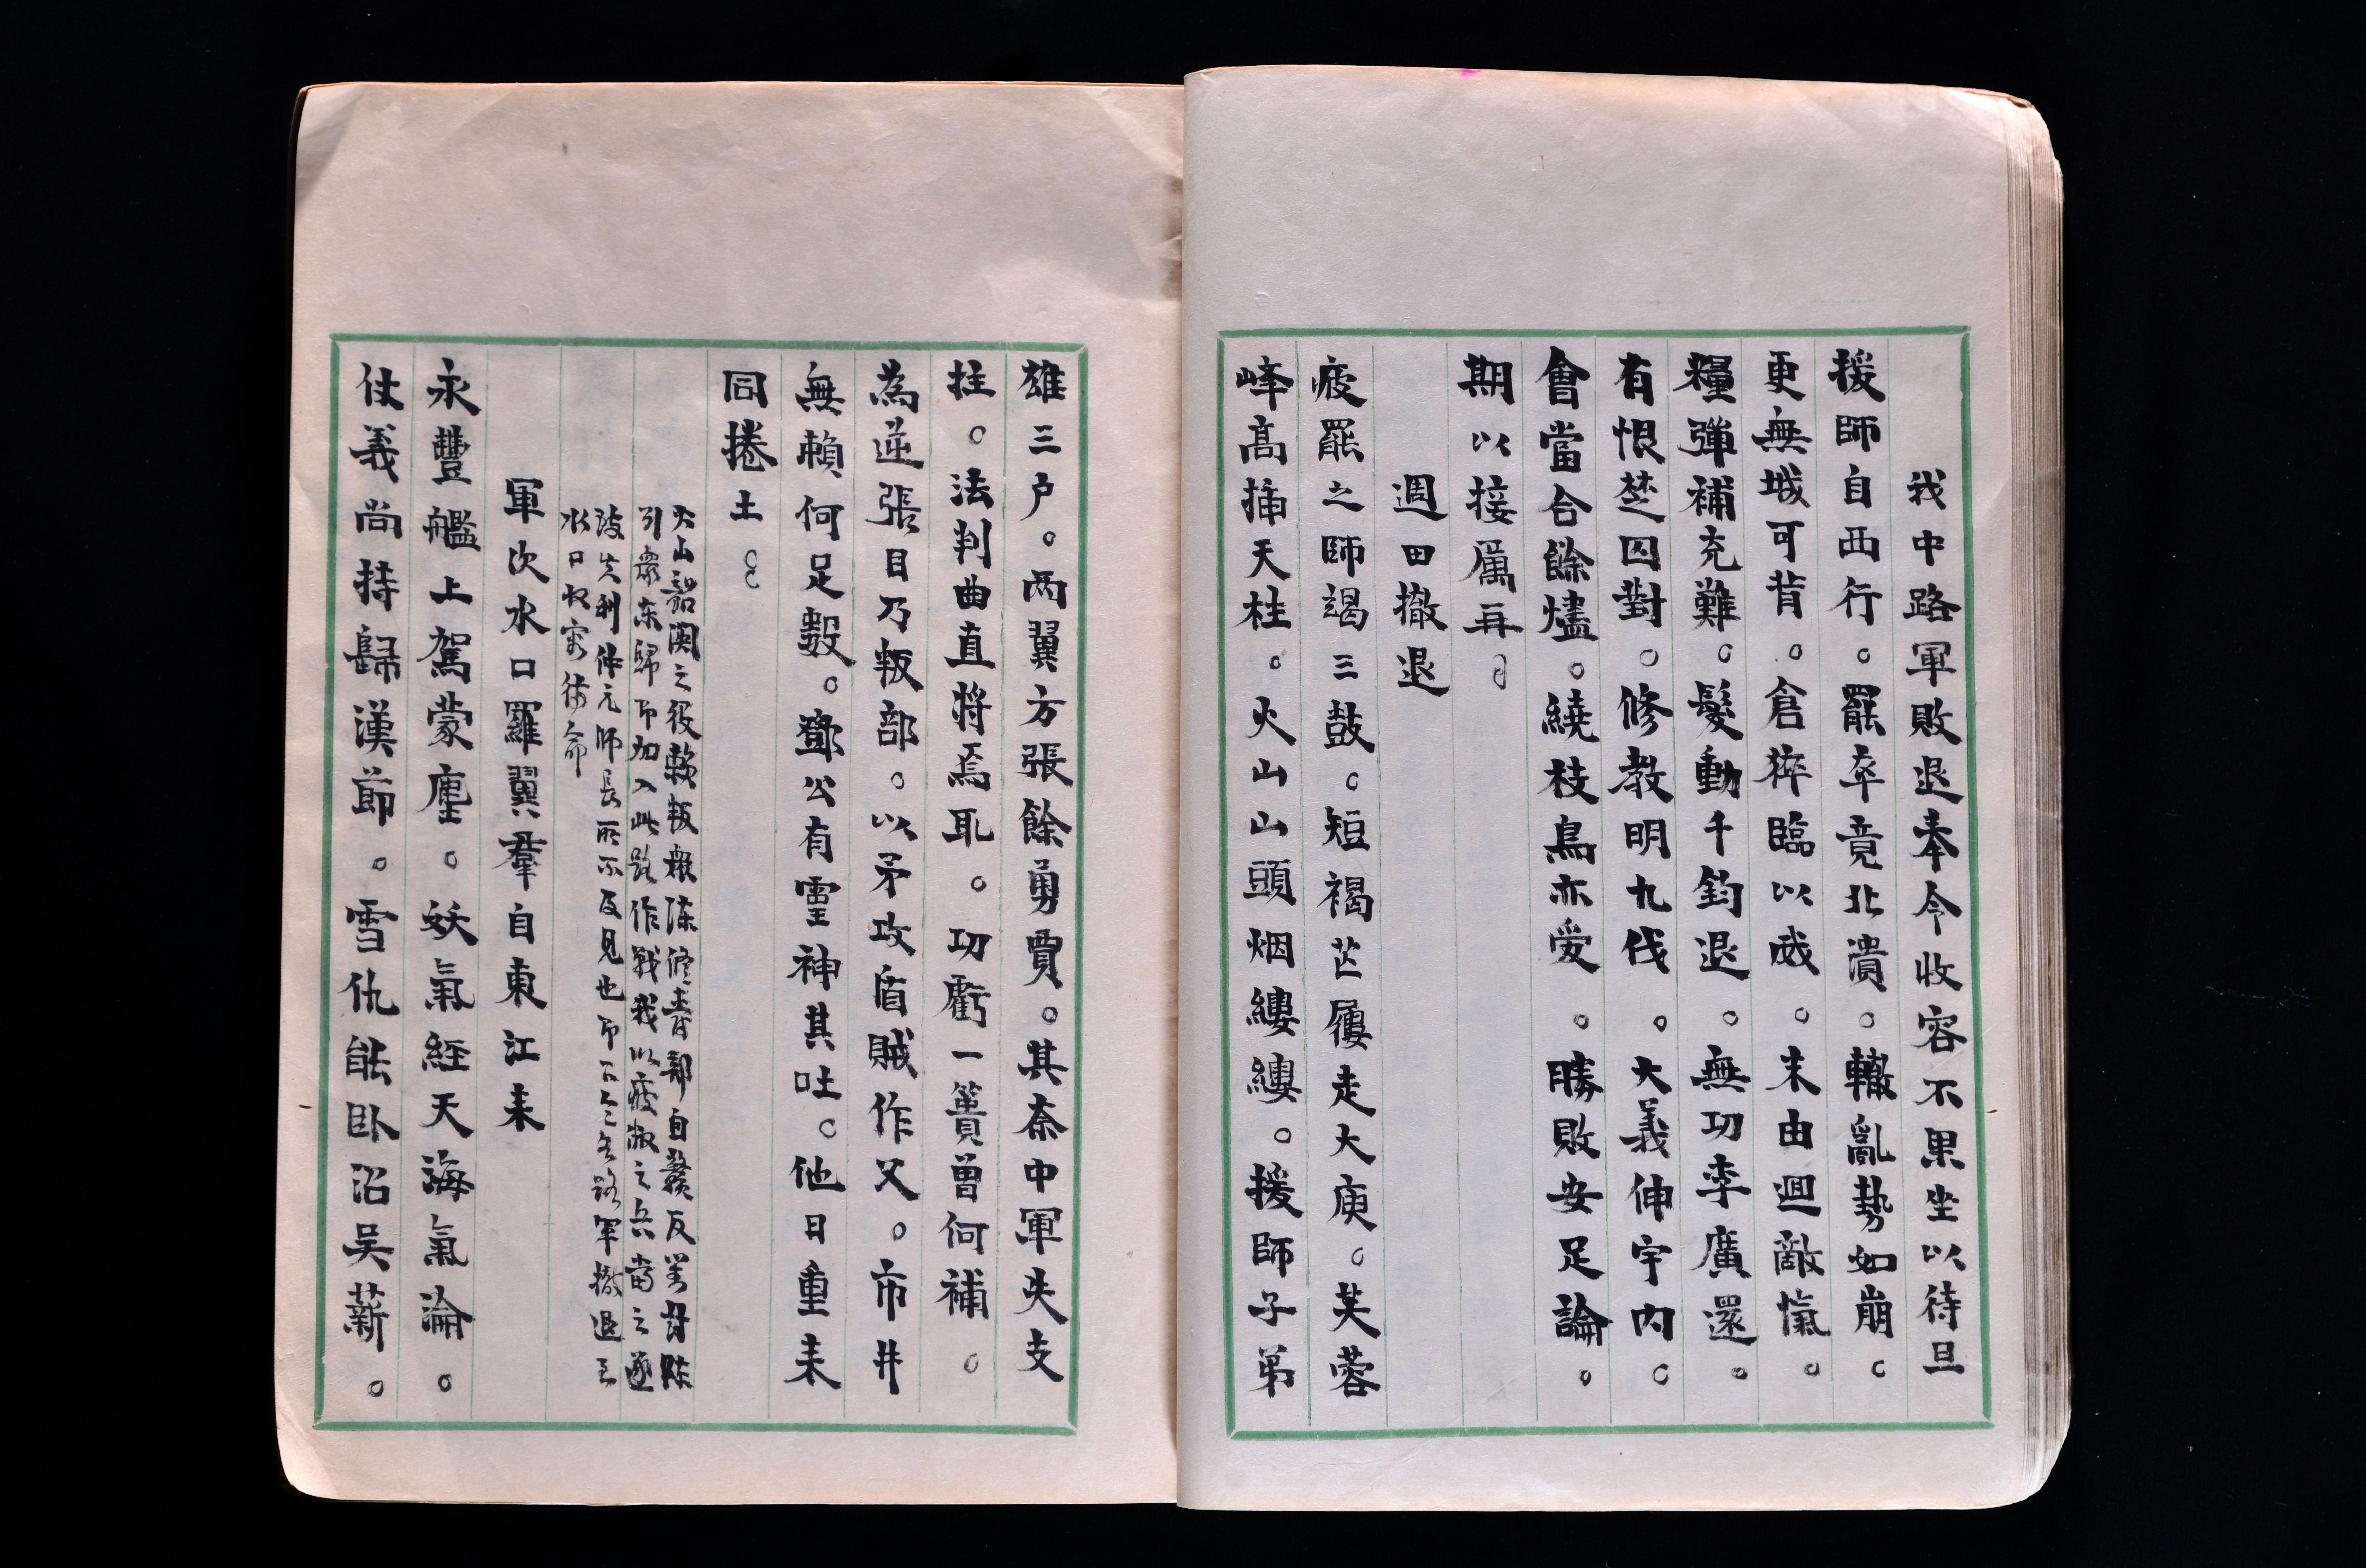 我中路軍敗退奉令收容不果坐以待旦
援師自西行。罷卒竟北潰。轍亂勢如崩。
更無城可背。倉猝臨以威。未由迴敵愾。
糧彈補充難。髮動千鈞退。無功李廣還。
有恨楚囚對。修教明九伐。大義伸宇内。
會當合餘燼。繞枝鳥亦愛。勝敗安足論。
期以接厲再。
週田撤退
疲罷之師竭三鼓。短褐芒屨走大庾。芙蓉
峰高插天柱。火山山頭烟縷縷。援師子弟
雄三户。兩翼方張餘勇賈。其奈中軍失支
拄。法判曲直將焉耻。功虧一簣曾何補。
為逆張目乃叛部。以矛攻盾賊作父。市井
無賴何足數。鄧公有靈神其吐。他日重来
同捲土。
火山韶関之役賴叛燦陳修爵部自贛反粤討陳
引衆东歸即加入此路作戰我以疲敝之兵當之遂
致失利仲元师長所不及見也即日令各路军撤退至
水口收容待命
軍次水口羅翼羣自東江来
永豐艦上駕蒙塵。妖氣經天海氣淪。
仗義尚持歸漢節。雪仇能卧沼吴薪。